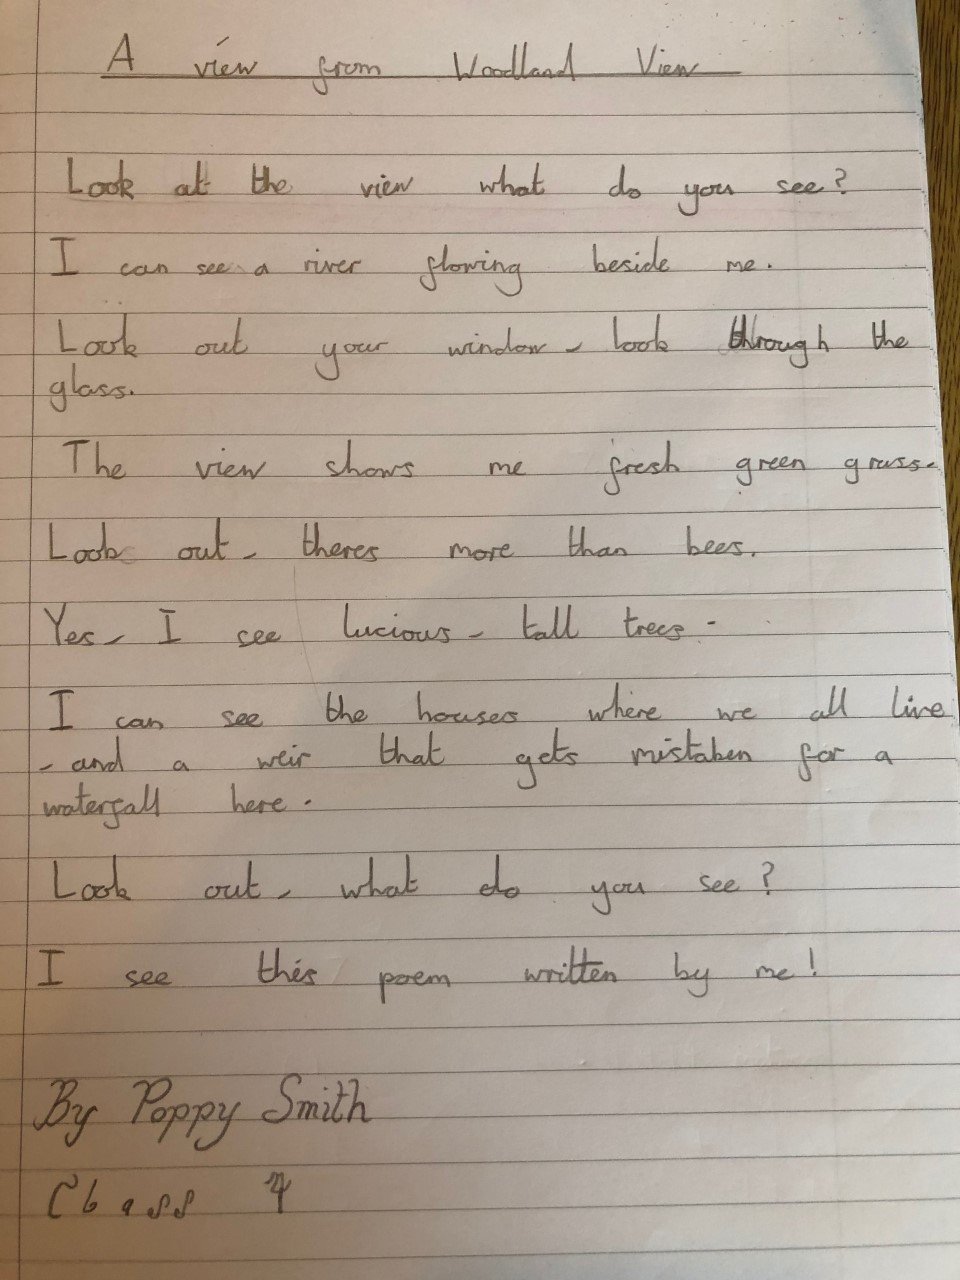 A view from Woodland View
Look at the view what do you see?
I can see a river flowing beside me.
Look out your window - look through the
glass.
The view shows me fresh green grass.
Look out - theres more than bees.
Yes - I see lucious - tall trees.
I can see the houses where we all live
- and a weir that gets mistaken for a
waterfall here.
Look out - what do you see?
I see this poem written by me!
By Poppy Smith
Class 4